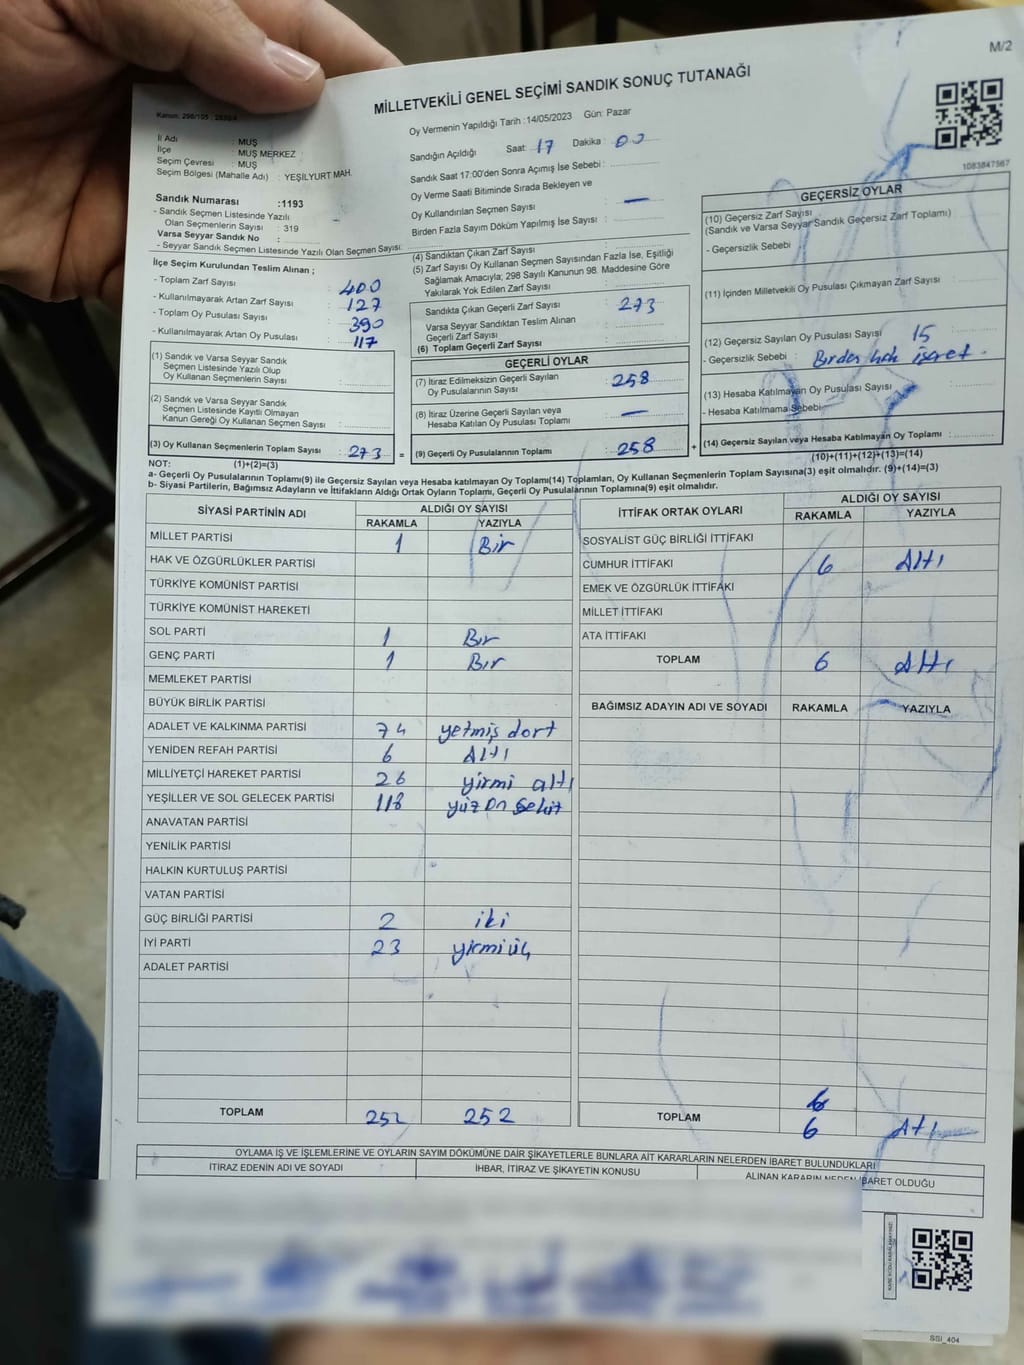 M/2
MİLLETVEKİLİ GENEL SEÇİMİ SANDIK SONUÇ TUTANAĞI
Oy Vermenin Yapıldığı Tarih : 14/05/2023 Gün: Pazar
İl Adı : MUŞ
İlçe : MUŞ MERKEZ
Seçim Çevresi : MUŞ
Seçim Bölgesi (Mahalle Adı) : YEŞİLYURT MAH.
Sandık Numarası :1193
- Sandık Seçmen Listesinde Yazılı
Olan Seçmenlerin Sayısı : 319
Varsa Seyyar Sandık No :
- Seyyar Sandık Seçmen Listesinde Yazılı Olan Seçmen Sayısı:
Sandığın Açıldığı Saat: 17 Dakika : 00
Sandık Saat 17:00'den Sonra Açımış İse Sebebi :
Oy Verme Saati Bitiminde Sırada Bekleyen ve
Oy Kullandırılan Seçmen Sayısı : —
Birden Fazla Sayım Döküm Yapılmış İse Sayısı :
1083847567
İlçe Seçim Kurulundan Teslim Alınan ;
- Toplam Zarf Sayısı : 400
- Kullanılmayarak Artan Zarf Sayısı : 127
- Toplam Oy Pusulası Sayısı : 390
- Kullanılmayarak Artan Oy Pusulası : 117
(1) Sandık ve Varsa Seyyar Sandık
Seçmen Listesinde Yazılı Olup
Oy Kullanan Seçmenlerin Sayısı :
(2) Sandık ve Varsa Seyyar Sandık
Seçmen Listesinde Kayıtlı Olmayan
Kanun Gereği Oy Kullanan Seçmen Sayısı :
(3) Oy Kullanan Seçmenlerin Toplam Sayısı : 273 =
(4) Sandıktan Çıkan Zarf Sayısı :
(5) Zarf Sayısı Oy Kullanan Seçmen Sayısından Fazla İse, Eşitliği
Sağlamak Amacıyla; 298 Sayılı Kanunun 98. Maddesine Göre
Yakılarak Yok Edilen Zarf Sayısı :
Sandıkta Çıkan Geçerli Zarf Sayısı : 273
Varsa Seyyar Sandıktan Teslim Alınan
Geçerli Zarf Sayısı :
(6) Toplam Geçerli Zarf Sayısı :
GEÇERLİ OYLAR
(7) İtiraz Edilmeksizin Geçerli Sayılan
Oy Pusulalarının Sayısı : 258
(8) İtiraz Üzerine Geçerli Sayılan veya
Hesaba Katılan Oy Pusulası Toplamı : —
(9) Geçerli Oy Pusulalarının Toplamı : 258 +
GEÇERSİZ OYLAR
(10) Geçersiz Zarf Sayısı
(Sandık ve Varsa Seyyar Sandık Geçersiz Zarf Toplamı) :
- Geçersizlik Sebebi :
(11) İçinden Milletvekili Oy Pusulası Çıkmayan Zarf Sayısı :
(12) Geçersiz Sayılan Oy Pusulası Sayısı : 15
- Geçersizlik Sebebi :
(13) Hesaba Katılmayan Oy Pusulası Sayısı :
- Hesaba Katılmama Sebebi:
(14) Geçersiz Sayılan veya Hesaba Katılmayan Oy Toplamı :
NOT: (1)+(2)=(3)
(10)+(11)+(12)+(13)=(14)
a- Geçerli Oy Pusulalarının Toplamı(9) ile Geçersiz Sayılan veya Hesaba katılmayan Oy Toplamı(14) Toplamları, Oy Kullanan Seçmenlerin Toplam Sayısına(3) eşit olmalıdır. (9)+(14)=(3)
b- Siyasi Partilerin, Bağımsız Adayların ve İttifakların Aldığı Ortak Oyların Toplamı, Geçerli Oy Pusulalarının Toplamına(9) eşit olmalıdır.
SİYASİ PARTİNİN ADI ALDIĞI OY SAYISI
RAKAMLA YAZIYLA
MİLLET PARTİSİ 1 Bir
HAK VE ÖZGÜRLÜKLER PARTİSİ
TÜRKİYE KOMÜNİST PARTİSİ
TÜRKİYE KOMÜNİST HAREKETİ
SOL PARTİ 1 Bir
GENÇ PARTİ 1 Bir
MEMLEKET PARTİSİ
BÜYÜK BİRLİK PARTİSİ
ADALET VE KALKINMA PARTİSİ 74 yetmiş dört
YENİDEN REFAH PARTİSİ 6 Altı
MİLLİYETÇİ HAREKET PARTİSİ 26 yirmi altı
YEŞİLLER VE SOL GELECEK PARTİSİ 118 yüz on sekiz
ANAVATAN PARTİSİ
YENİLİK PARTİSİ
HALKIN KURTULUŞ PARTİSİ
VATAN PARTİSİ
GÜÇ BİRLİĞİ PARTİSİ 2 iki
İYİ PARTİ 23 yirmi üç
ADALET PARTİSİ
TOPLAM 252 252
İTTİFAK ORTAK OYLARI ALDIĞI OY SAYISI
RAKAMLA YAZIYLA
SOSYALİST GÜÇ BİRLİĞİ İTTİFAKI
CUMHUR İTTİFAKI 6 Altı
EMEK VE ÖZGÜRLÜK İTTİFAKI
MİLLET İTTİFAKI
ATA İTTİFAKI
TOPLAM 6 Altı
BAĞIMSIZ ADAYIN ADI VE SOYADI RAKAMLA YAZIYLA
6
TOPLAM 6 Altı
OYLAMA İŞ VE İŞLEMLERİNE VE OYLARIN SAYIM DÖKÜMÜNE DAİR ŞİKAYETLERLE BUNLARA AİT KARARLARIN NELERDEN İBARET BULUNDUKLARI
İTİRAZ EDENİN ADI VE SOYADI İHBAR, İTİRAZ VE ŞİKAYETİN KONUSU ALINAN KARARIN NEDEN İBARET OLDUĞU
SSI_404